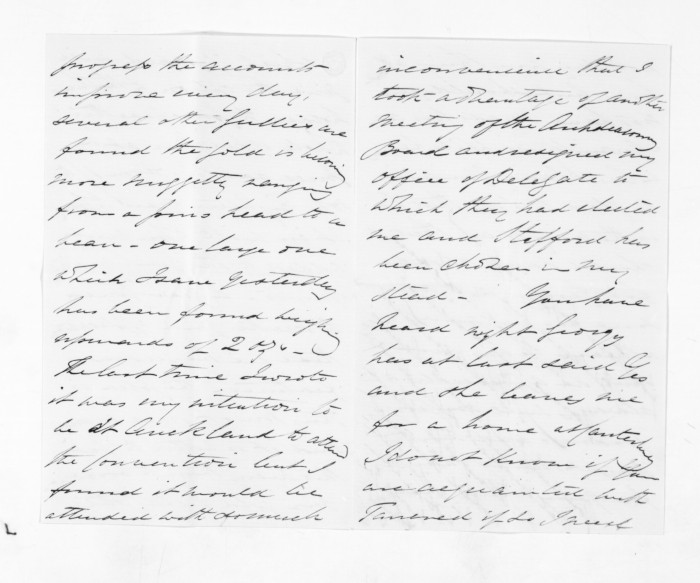 progress the accounts
improve every day,
several other Gullies are
found the Gold is becoming
more nuggetty ranging
from a pins head to a
bean - one large one
which I saw yesterday
has been found weighing
upwards of 2 ozs -
The last time I wrote
it was my intention to
be at Auckland to attend
the Convention but I
found it would be
attended with so much
inconvenience that I
took advantage of another
meeting of the Archdeaconry
Board and resigned my
office of Delegate to
which they had elected
me and Stafford has
been chosen in my
stead - You have
heard right Georgy
has at last said Yes
and she leaves me
for a home at Canterbury
I do not know if you
are acquainted with
Tancred if so I need